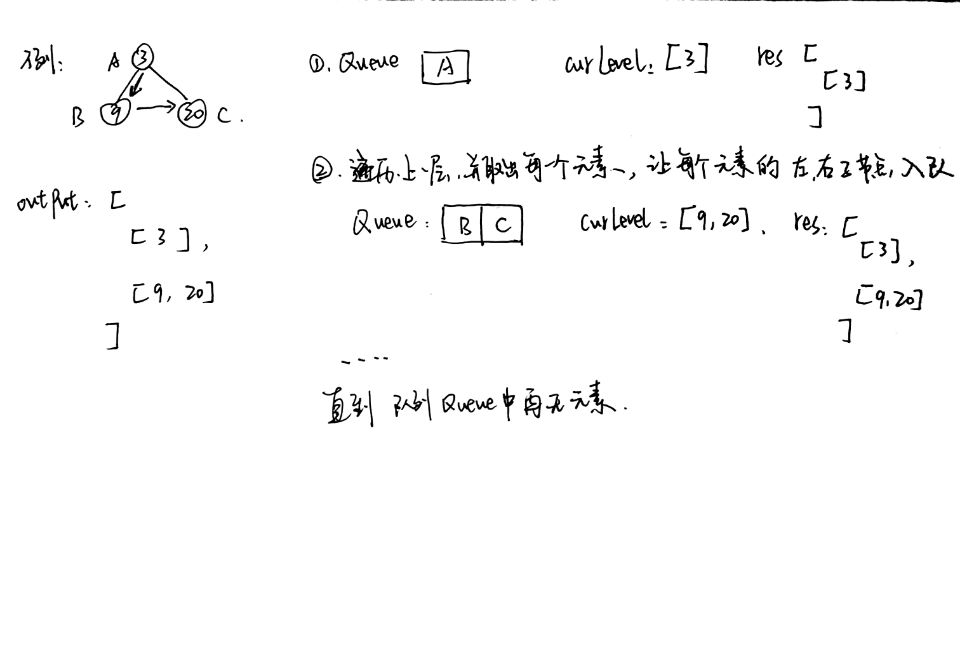 示例: A 3
B 9 20 C.
output: [
[3],
[9, 20]
]
①. Queue A curLevel: [3] res [
[3]
]
②. 遍历上一层,并取出每个元素,让每个元素的左,右子节点,入队
Queue: B C curLevel = [9, 20]. res: [
[3],
[9,20]
]
....
直到 队列 Queue中再无元素.